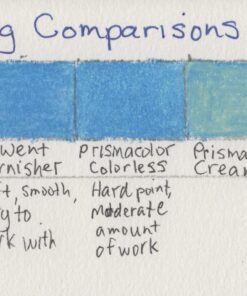 g Comparisons
went Prismacolor Prisma
rnisher Colorless Crean
ft, smooth, Hard point,
y to moderate
rk with amount
of work